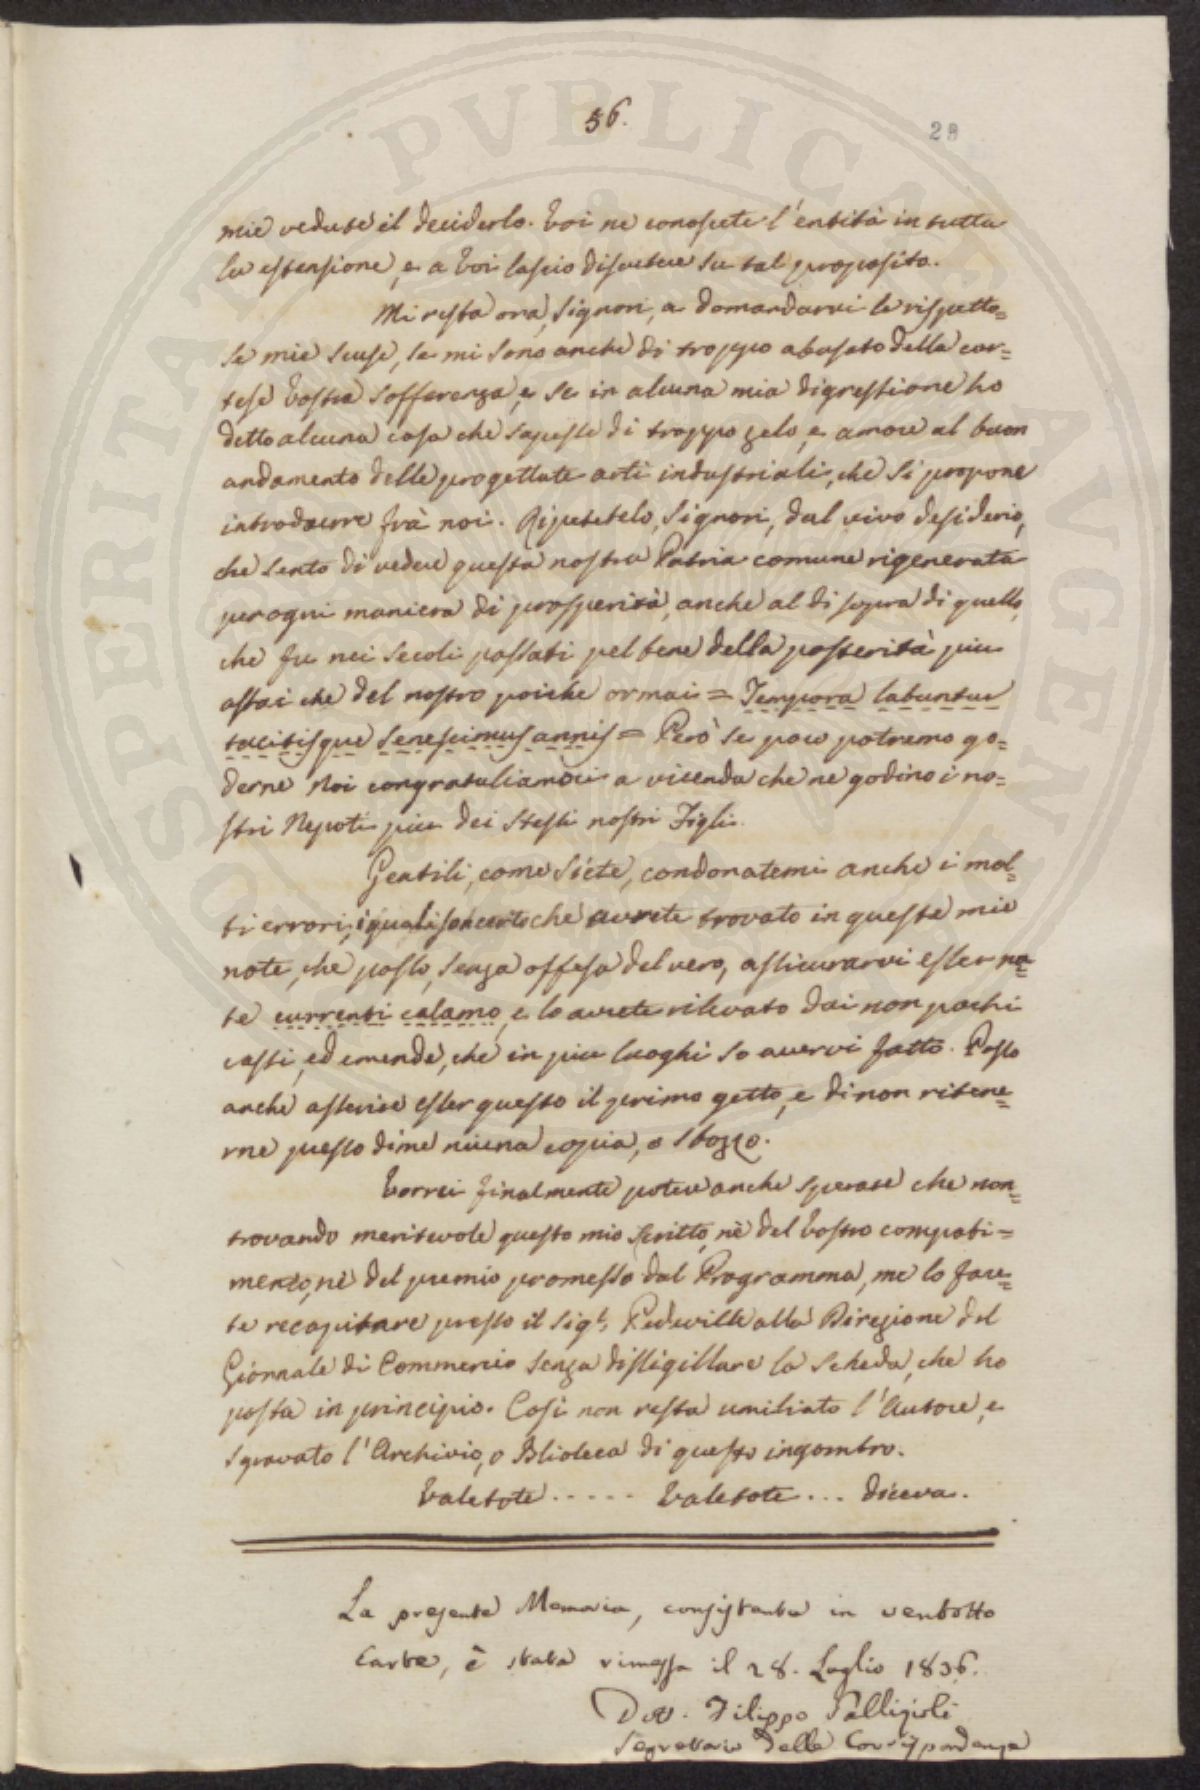 56.
28
mie vedute il deciderlo. Voi ne conoscete l'entità in tutta
la estensione, e a Voi lascio discutere su tal proposito.
Mi resta ora, Signori, a domandarvi le rispetto=
se mie scuse, se mi sono anche di troppo abusato della cor=
tese Vostra sofferenza, e se in alcuna mia digressione ho
detto alcuna cosa che sapesse di troppo zelo, e amore al buon
andamento delle progettate arti industriali, che si propone
introdurre frà noi. Ripetetelo, Signori, dal vivo desiderio,
che sento di vedere questa nostra Patria comune rigenerata
per ogni maniera di prosperità, anche al di sopra di quello,
che fu nei secoli passati pel bene della posterità piu
assai che del nostro poiche ormai = Tempora labuntur
tacitisque senescimus annis = Però se poco potremo go=
derne Noi congratuliamoci a vicenda che ne godino i no=
stri Nepoti piu dei stessi nostri Figli.
Gentili, come siete, condonatemi anche i mol=
ti errori, i quali son certo che avrete trovato in queste mie
note, che posso, senza offesa del vero, assicurarvi esser na=
te currenti calamo, e lo avrete rilevato dai non pochi
cassi, ed emende, che in piu luoghi so avervi fatto. Posso
anche asserire esser questo il primo getto, e di non ritene=
rne presso di me niuna copia, o sbozzo.
Vorrei finalmente potere anche sperare che non=
trovando meritevole questo mio scritto, nè del Vostro compati=
mento, nè del premio promesso dal Programma, me lo fare=
te recapitare presso il Sig.r Pedeville alla Direzione del
Giornale di Commercio senza dissigillare la scheda, che ho
posta in principio. Cosi non resta umiliato l'Autore, e
sgravato l'Archivio, o Blioteca di questo ingombro.
Valetote ..... Valetote ... diceva.
La presente Memoria, consistente in ventotto
Carte, è stata rimessa il 28. Luglio 1836.
Dott. Filippo Gallizioli
Segretario delle Corrispondenze
PROSPERITATI PVBLICAE AVGENDAE